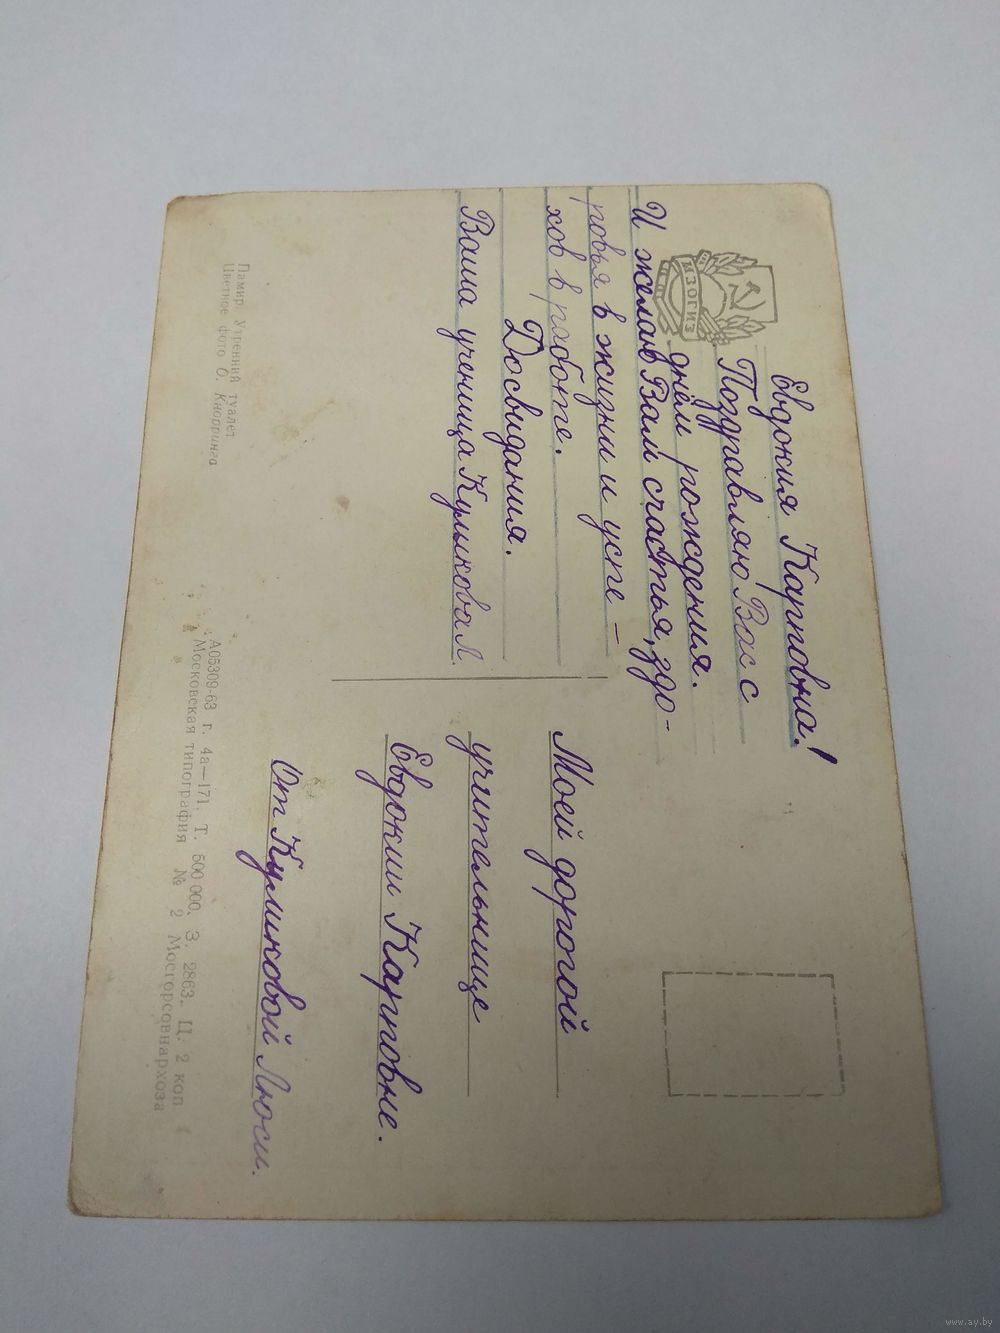 ИЗОГИЗ
Евдокия Карповна!
Поздравляю Вас с
днём рождения.
И желаю Вам счастья, здо-
ровья в жизни и успе-
хов в работе.
Досвидания.
Ваша ученица Куликова Л.
Памир. Утренний туалет
Цветное фото О. Кнорринга
Моей дорогой
учительнице
Евдокии Карповне.
От Куликовой Люси.
А05309-63 г. 4а—171. Т. 500 000. З. 2863. Ц. 2 коп
Московская типография № 2 Мосгорсовнархоза
www.ay.by